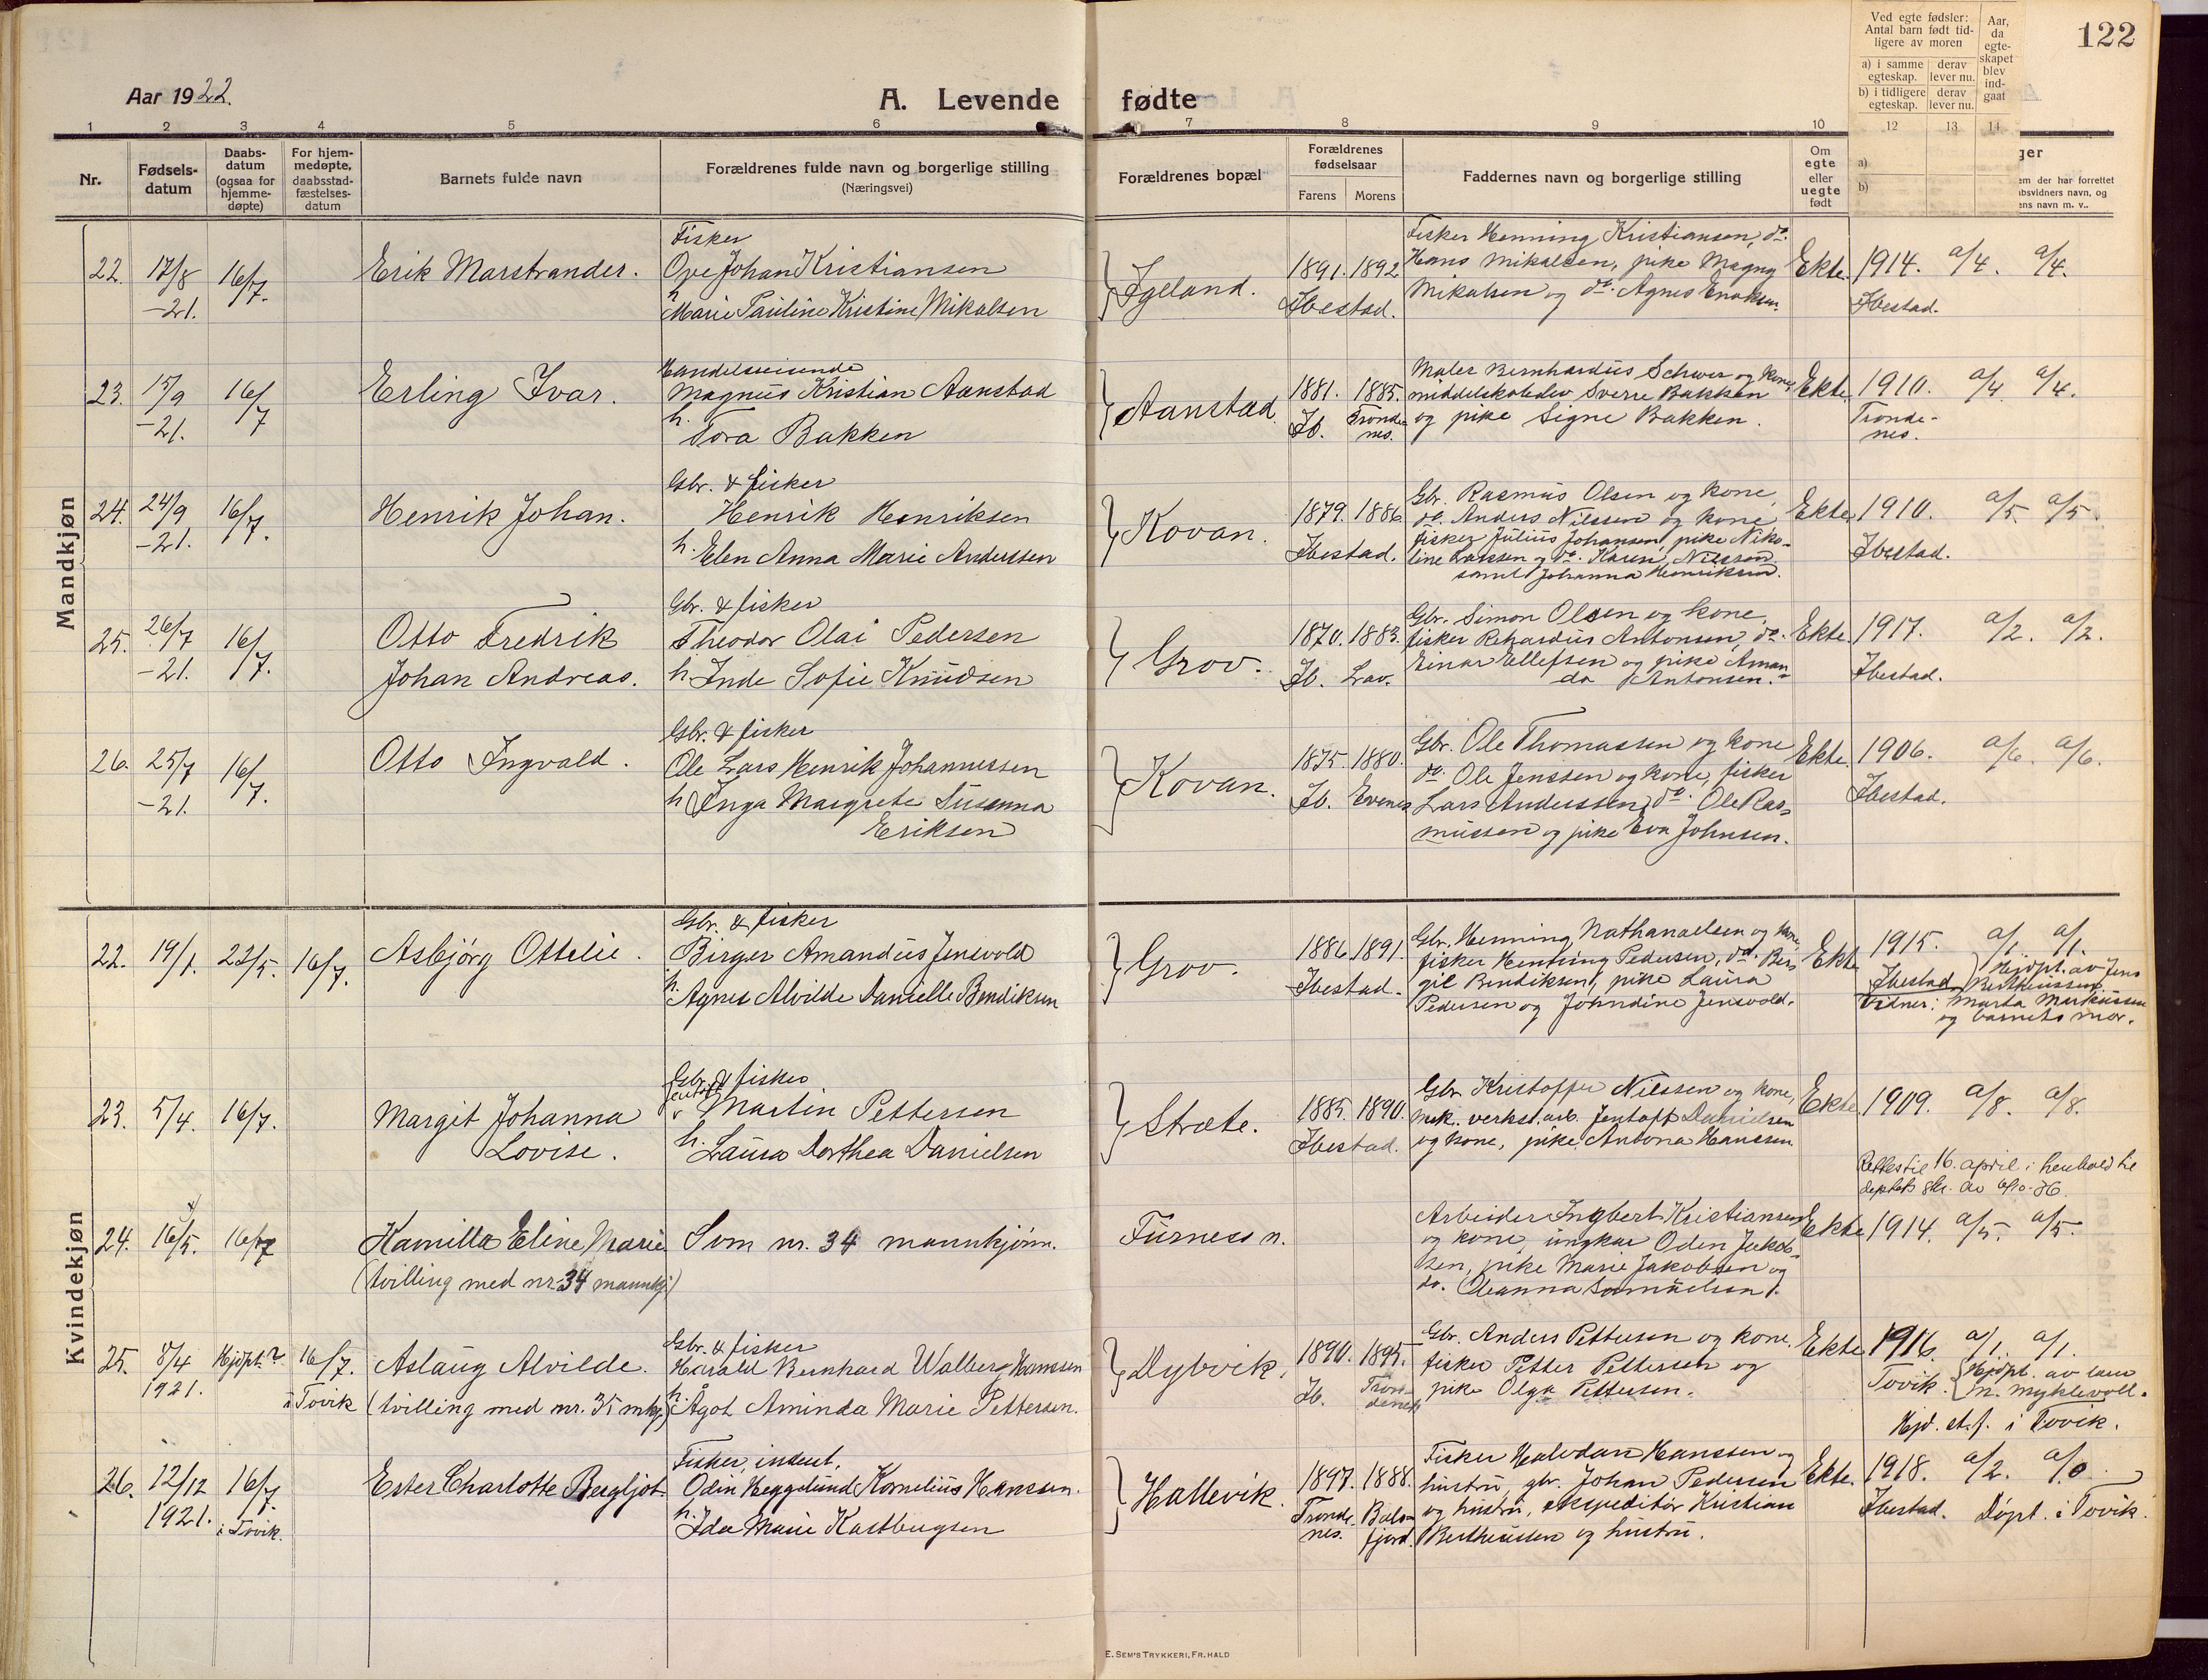 Aar 1922.
A. Levende fødte
122
1 2 3 4 5 6 7 8 9 10 12 13 14
Nr.
Fødsels-
datum
Daabs-
datum
(ogsaa for
hjemme-
døpte)
For hjem-
medøpte,
daabsstad-
fæstelses-
datum
Barnets fulde navn
Forældrenes fulde navn og borgerlige stilling
(Næringsvei)
Forældrenes bopæl
Forældrenes
fødselsaar
Farens Morens
Faddernes navn og borgerlige stilling
Om
egte
eller
uegte
født
Ved egte fødsler:
Antal barn født tid-
ligere av moren
a) i samme
egteskap.
derav
lever nu.
b) i tidligere
egteskap.
derav
lever nu.
Aar,
da
egte-
skapet
blev
ind-
gaat
a)
b)
ger
em der har forrettet
bsvidners navn, og
ens navn m. v..
Mandkjøn
22. 17/8 -21. 16/7. Erik Marstrander.
Fisker
Ove Johan Kristiansen
h Marie Pauline Kristine Mikalsen
Igeland.
1891. 1892
Ibestad.
Fisker Henning Kristiansen, do.
Hans Mikalsen, pike Magny
Mikalsen og do. Agnes Enoksen.
Ekte. 1914. a/4. a/4.
Ibestad.
23. 15/9 -21. 16/7 Erling Ivar.
Handelsreisende
Magnus Kristian Aanstad
h. Tora Bakken
Aanstad.
1881. 1885.
Ib. Tronde-
nes.
Maler Bernhardus Schwer og kone
middelskoleelev Sverre Bakken
og pike Signe Bakken.
Ekte. 1910. a/4 a/4.
Tronde-
nes.
24. 24/9 -21. 16/7. Henrik Johan.
Gbr. & fisker
Henrik Henriksen
h. Elen Anna Marie Anderssen
Kovan.
1879. 1886
Ibestad.
Gbr. Rasmus Olsen og kone,
do. Anders Nilssen og kone,
fisker Julius Johansen, pike Niko-
line Larssen og do. Karen Nilssen
samt Johanna Henriksen.
Ekte 1910. a/5 a/5.
Ibestad.
25. 26/7 -21. 16/7. Otto Fredrik
Johan Andreas.
Gbr. & fisker
Theodor Olai Pedersen
h. Inde Sofie Knudsen
Grov.
1870. 1883.
Ib. Lav.
Gbr. Simon Olsen og kone,
fisker Rikardus Antonsen, do.
Einar Ellefsen og pike Aman-
da Antonsen.
Ekte. 1917. a/2. a/2.
Ibestad.
26. 25/7 -21. 16/7. Otto Ingvald.
Gbr. & fisker
Ole Lars Henrik Johannessen
h Inga Margrete Susanna
Eriksen
Kovan.
1875. 1880.
Ib. Evenes
Gbr. Ole Thomassen og kone
do. Ole Jenssen og kone, fisker
Lars Anderssen, do. Ole Ras-
mussen og pike Eva Johnsen.
Ekte. 1906. a/6. a/6.
Ibestad.
Kvindekjøn
22. 19/1. 23/5. 16/7. Asbjörg Ottelie.
Gbr. & fisker
Birger Amandus Jensvold
h. Agnes Alvilde Danielle Bendiksen
Grov.
1886. 1891.
Ibestad.
Gbr. Henning Nathanaelsen og kone,
fisker Henning Pedersen, do. Ber-
gil Bendiksen, pike Laura
Pedersen og Johndine Jensvold.
Ekte 1915. a/1. a/1.
Ibestad Hjdpt. av Jens
Bertheussen.
Vidner: Marta Markussen
og barnets mor.
23. 5/4. 16/7. Margit Johanna
Lovise.
Gbr. & fisker
Jentoft
Martin Pettersen
h. Laura Dorthea Danielsen
Stræte.
1885. 1890.
Ibestad.
Gbr. Kristoffer Nilssen og kone,
mek. verkst. arb. Jentoft Danielsen
og kone, pike Antona Hanssen.
Ekte 1909. a/8. a/8.
Rettes til 16. april i henhold til
deptets skr. av 6/10-36.
24. 16/5. 16/7 Kamilla Eline Marie
(tvilling med nr. 34 mannkj.)
Som nr. 34 mannkjönn.
Furness n.
Arbeider Ingbert Kristiansen
og kone, ungkar Oden Jakob-
sen, pike Marie Jakobsen og
do. Oleanna Samuelsen.
Ekte 1914. a/5. a/5.
25. 8/4 1921. Hjdpt. 16/7. i Tovik
Aslaug Alvilde.
(tvilling med nr. 35 mkj.)
Gbr. & fisker
Harald Bernhard Walberg Hanssen
h. Ågot Aminda Marie Pettersen.
Dybvik.
1890. 1895.
Ib. Tron-
denes
Gbr. Anders Pettersen og kone,
fisker Petter Pettersen og
pike Olga Pettersen.
Ekte 1916. a/1. a/1.
Tovik. Hjdpt. av
M. Myklevoll.
Hjd. st. f. i Tovik.
26. 12/12 1921. 16/7. i Tovik.
Ester Charlotte Bergljot.
Fisker, inderst.
Odin Heggelund Kornelius Hanssen.
h. Ida Marie Kastbergsen
Hallevik.
1897. 1888.
Tronde-
nes. Bals-
fjord.
Fisker Halvdan Hanssen og
hustru, gbr. Johan Pedersen
og hustru, ekspeditör Kristian
Bertheussen og hustru.
Ekte. 1918. a/2. a/0.
Ibestad. Döpt i Tovik.
E. SEM'S TRYKKERI, FR.HALD